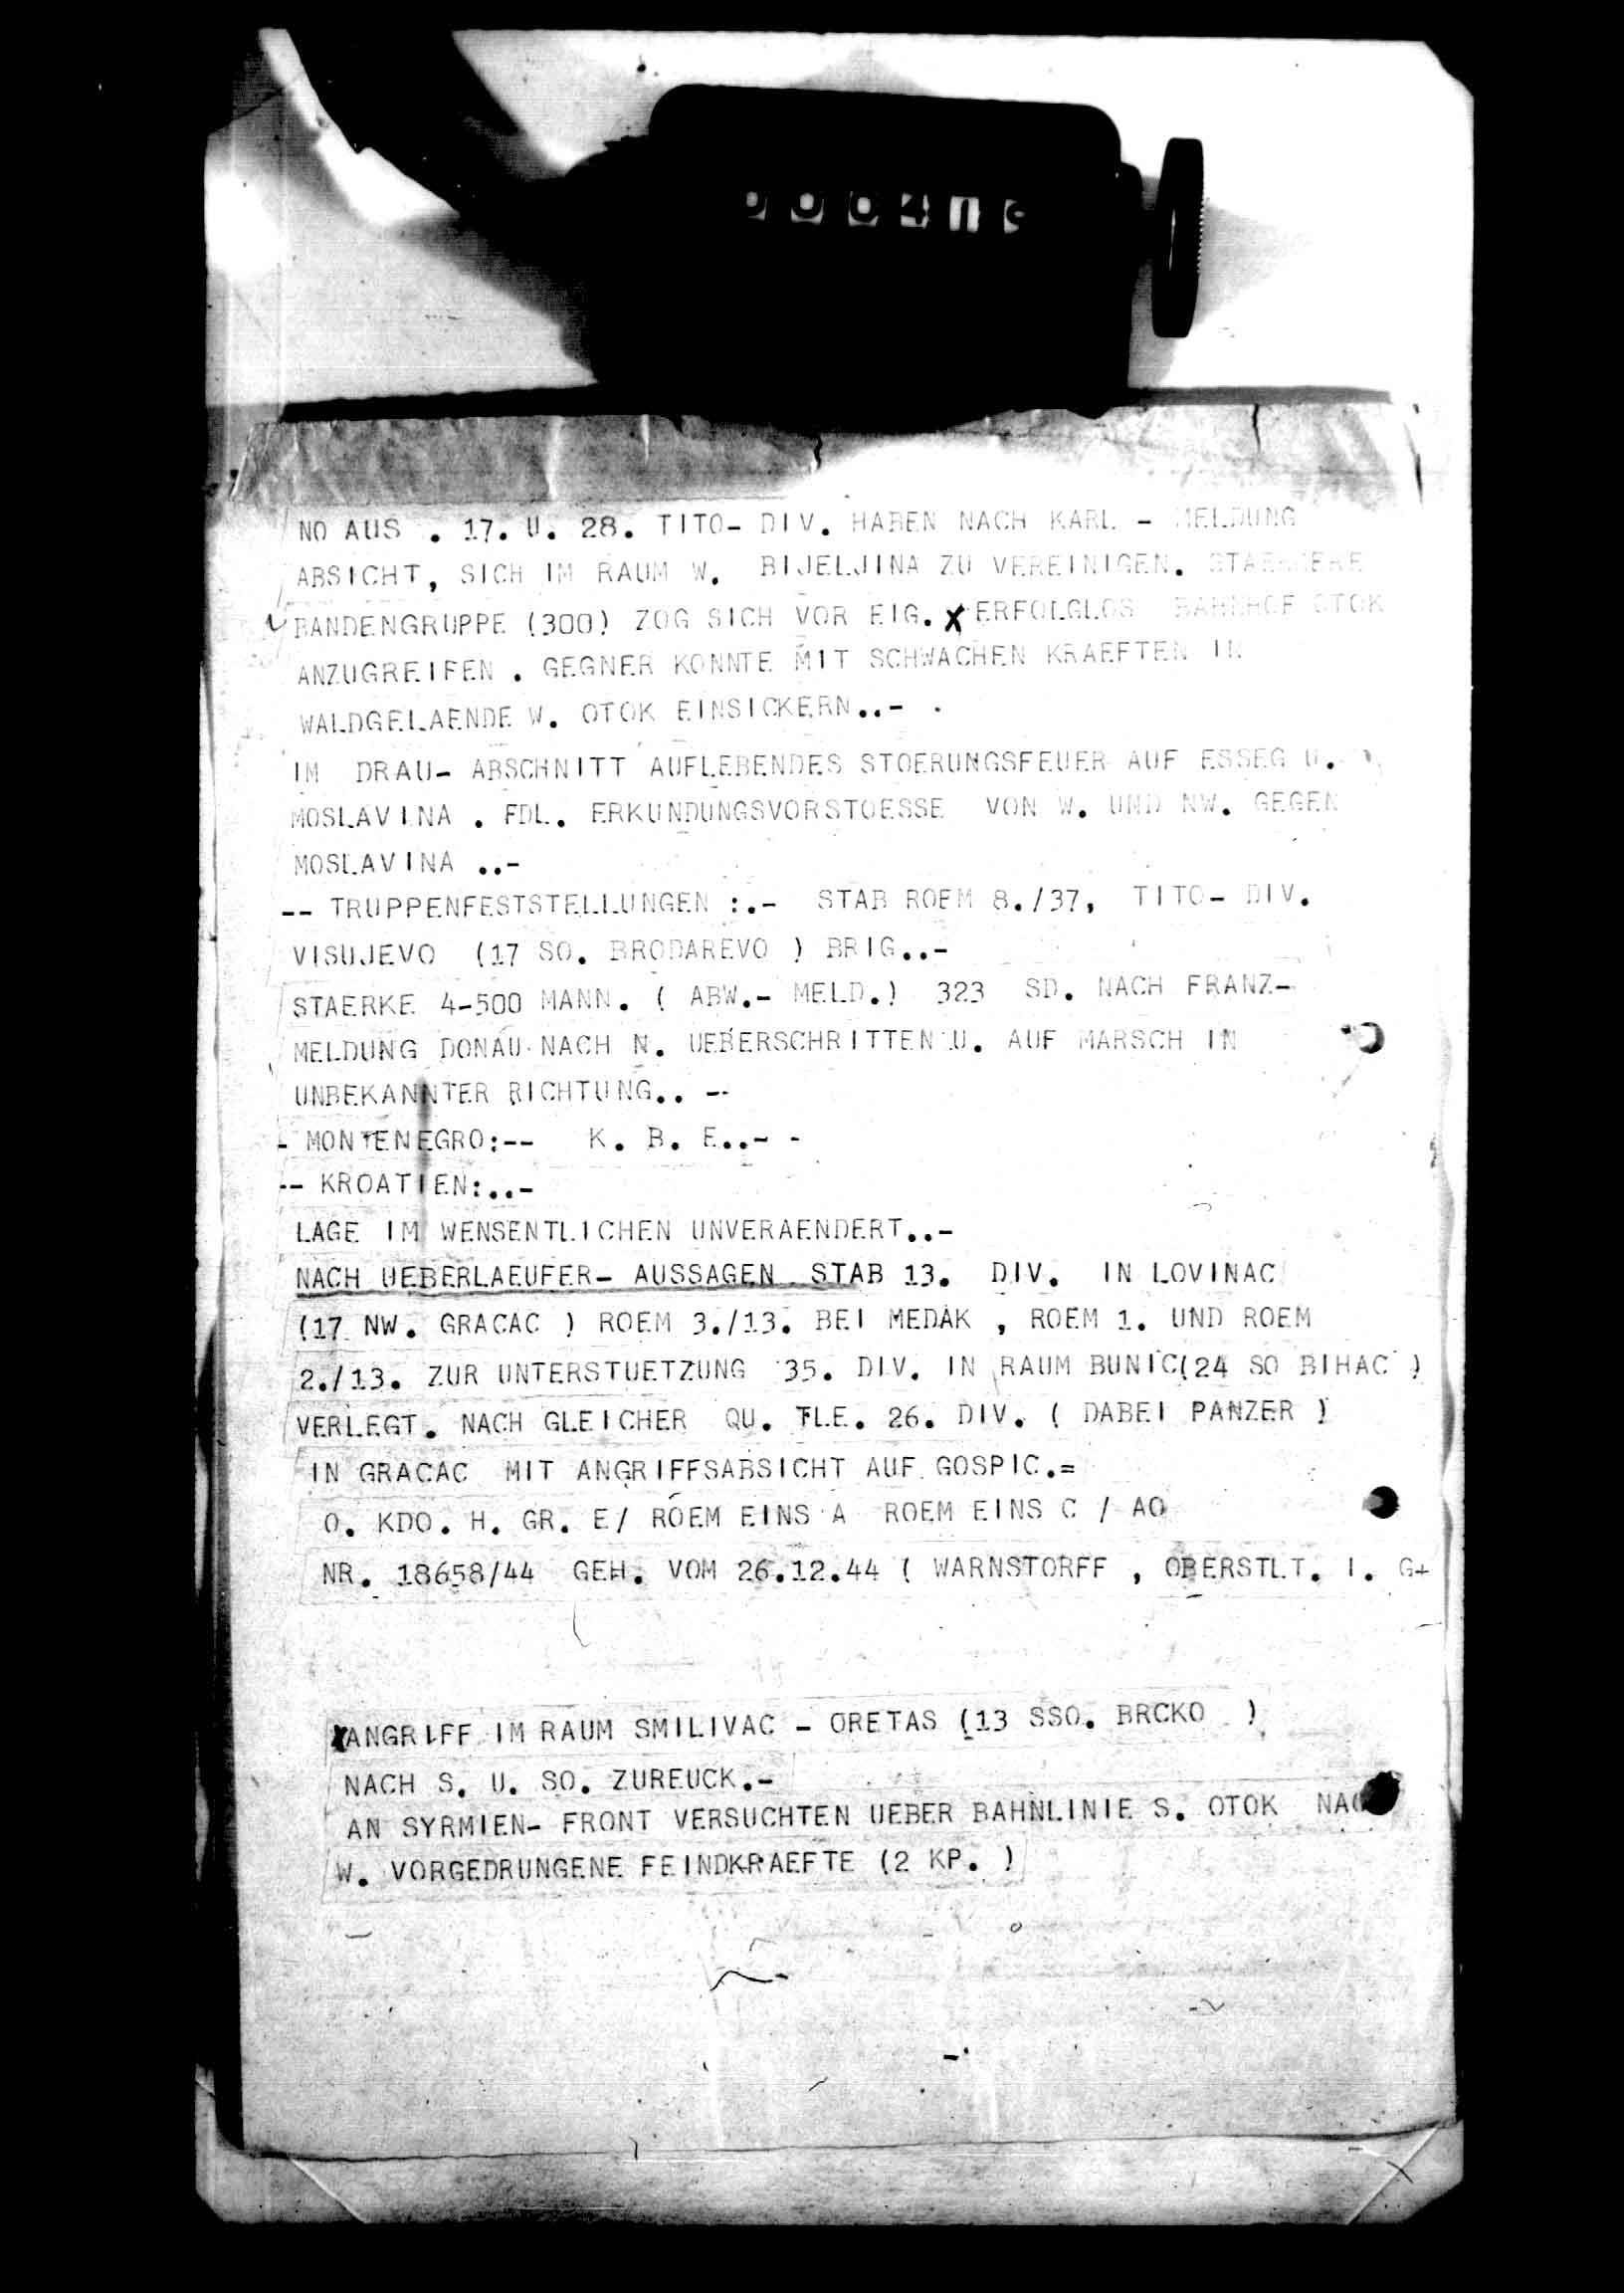 NO AUS . 17. U. 28. TITO- DIV. HABEN NACH KARL - MELDUNG
ABSICHT, SICH IM RAUM W. BIJELJINA ZU VEREINIGEN. STAERKERE
BANDENGRUPPE (300) ZOG SICH VOR EIG. X ERFOLGLOS BAHNHOF OTOK
ANZUGREIFEN . GEGNER KONNTE MIT SCHWACHEN KRAEFTEN IN
WALDGELAENDE W. OTOK EINSICKERN..- .
IM DRAU- ABSCHNITT AUFLEBENDES STOERUNGSFEUER AUF ESSEG U.
MOSLAVINA . FDL. ERKUNDUNGSVORSTOESSE VON W. UND NW. GEGEN
MOSLAVINA ..-
-- TRUPPENFESTSTELLUNGEN :.- STAB ROEM 8./37, TITO- DIV.
VISUJEVO (17 SO. BRODAREVO ) BRIG..-
STAERKE 4-500 MANN. ( ABW.- MELD.) 323 SD. NACH FRANZ-
MELDUNG DONAU NACH N. UEBERSCHRITTEN U. AUF MARSCH IN
UNBEKANNTER RICHTUNG.. --
- MONTENEGRO:-- K. B. E..- -
-- KROATIEN:..-
LAGE IM WENSENTLICHEN UNVERAENDERT..-
NACH UEBERLAEUFER- AUSSAGEN STAB 13. DIV. IN LOVINAC
(17 NW. GRACAC ) ROEM 3./13. BEI MEDAK , ROEM 1. UND ROEM
2./13. ZUR UNTERSTUETZUNG 35. DIV. IN RAUM BUNIC(24 SO BIHAC )
VERLEGT. NACH GLEICHER QU. TLE. 26. DIV. ( DABEI PANZER )
IN GRACAC MIT ANGRIFFSABSICHT AUF GOSPIC.=
O. KDO. H. GR. E/ ROEM EINS A ROEM EINS C / AO
NR. 18658/44 GEH. VOM 26.12.44 ( WARNSTORFF , OBERSTLT. I. G+
X ANGRIFF IM RAUM SMILIVAC - ORETAS (13 SSO. BRCKO )
NACH S. U. SO. ZUREUCK.-
AN SYRMIEN- FRONT VERSUCHTEN UEBER BAHNLINIE S. OTOK NAC
W. VORGEDRUNGENE FEINDKRAEFTE (2 KP. )